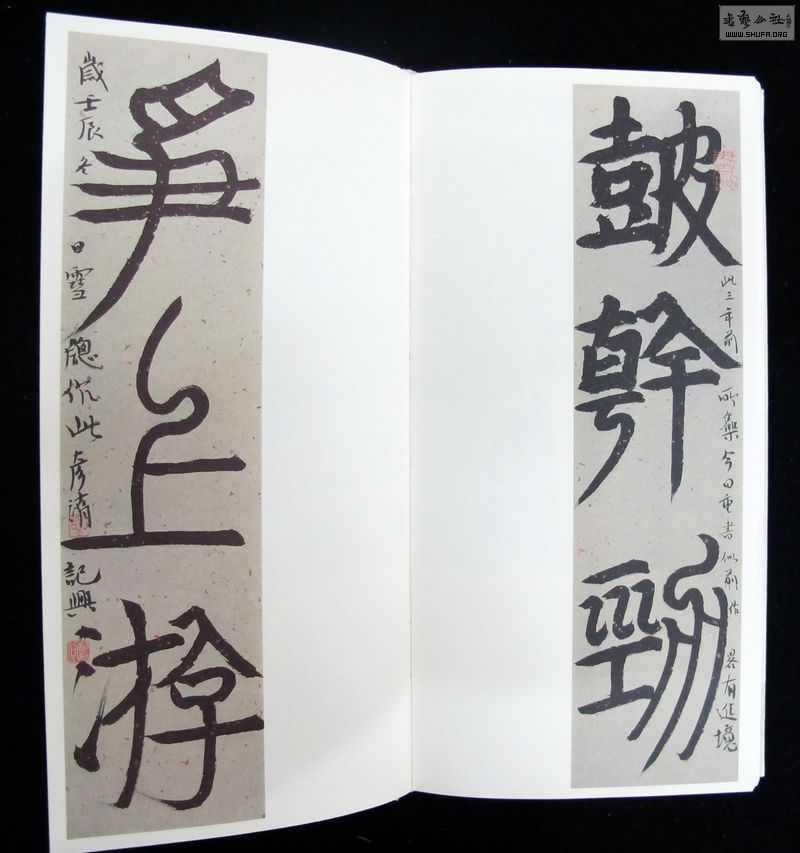 書藝公社
WWW.SHUFA.ORG
皷幹勁
此三年前所集今日重書似前作畧有進境
爭上游
歲壬辰冬日雪牕作此彥清記興